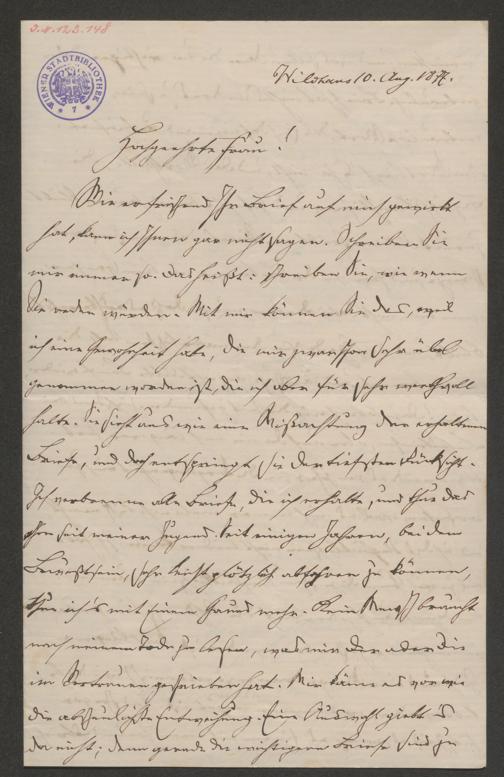 J.N. 123.148
WIENER STADTBIBLIOTHEK
7
Wildhaus 10. Aug. 187
Hochgeehrte Frau!
Wie erfrischend Ihr Brief auf mich gewirkt
hat, kann ich Ihnen gar nicht sagen. Schreiben Sie
mir immer so. Das heißt: schreiben Sie, wie wenn
Sie reden würden. Mit mir können Sie das, weil
ich eine Gewohnheit habe, die mir zwar schon sehr übel
genommen worden ist, die ich aber für sehr werthvoll
halte. Sie sieht aus wie eine Mißachtung der erhaltenen
Briefe, und doch entspringt sie der tiefsten Rücksicht.
Ich verbrenne alle Briefe, die ich erhalte, und thue das
schon seit meiner Jugend. Seit einigen Jahren, bei dem
Bewußtsein, sehr leicht plötzlich abfahren zu können,
thue ich's mit Einem Haus mehr. Kein Mensch braucht
nach meinem Tode zu lesen, was mir der oder die
im Vertrauen geschrieben hat. Mir käme es vor wie
die abscheulichste Entweihung. Eine Auswahl giebt's
da nicht; denn gerade die wichtigeren Briefe sind zu